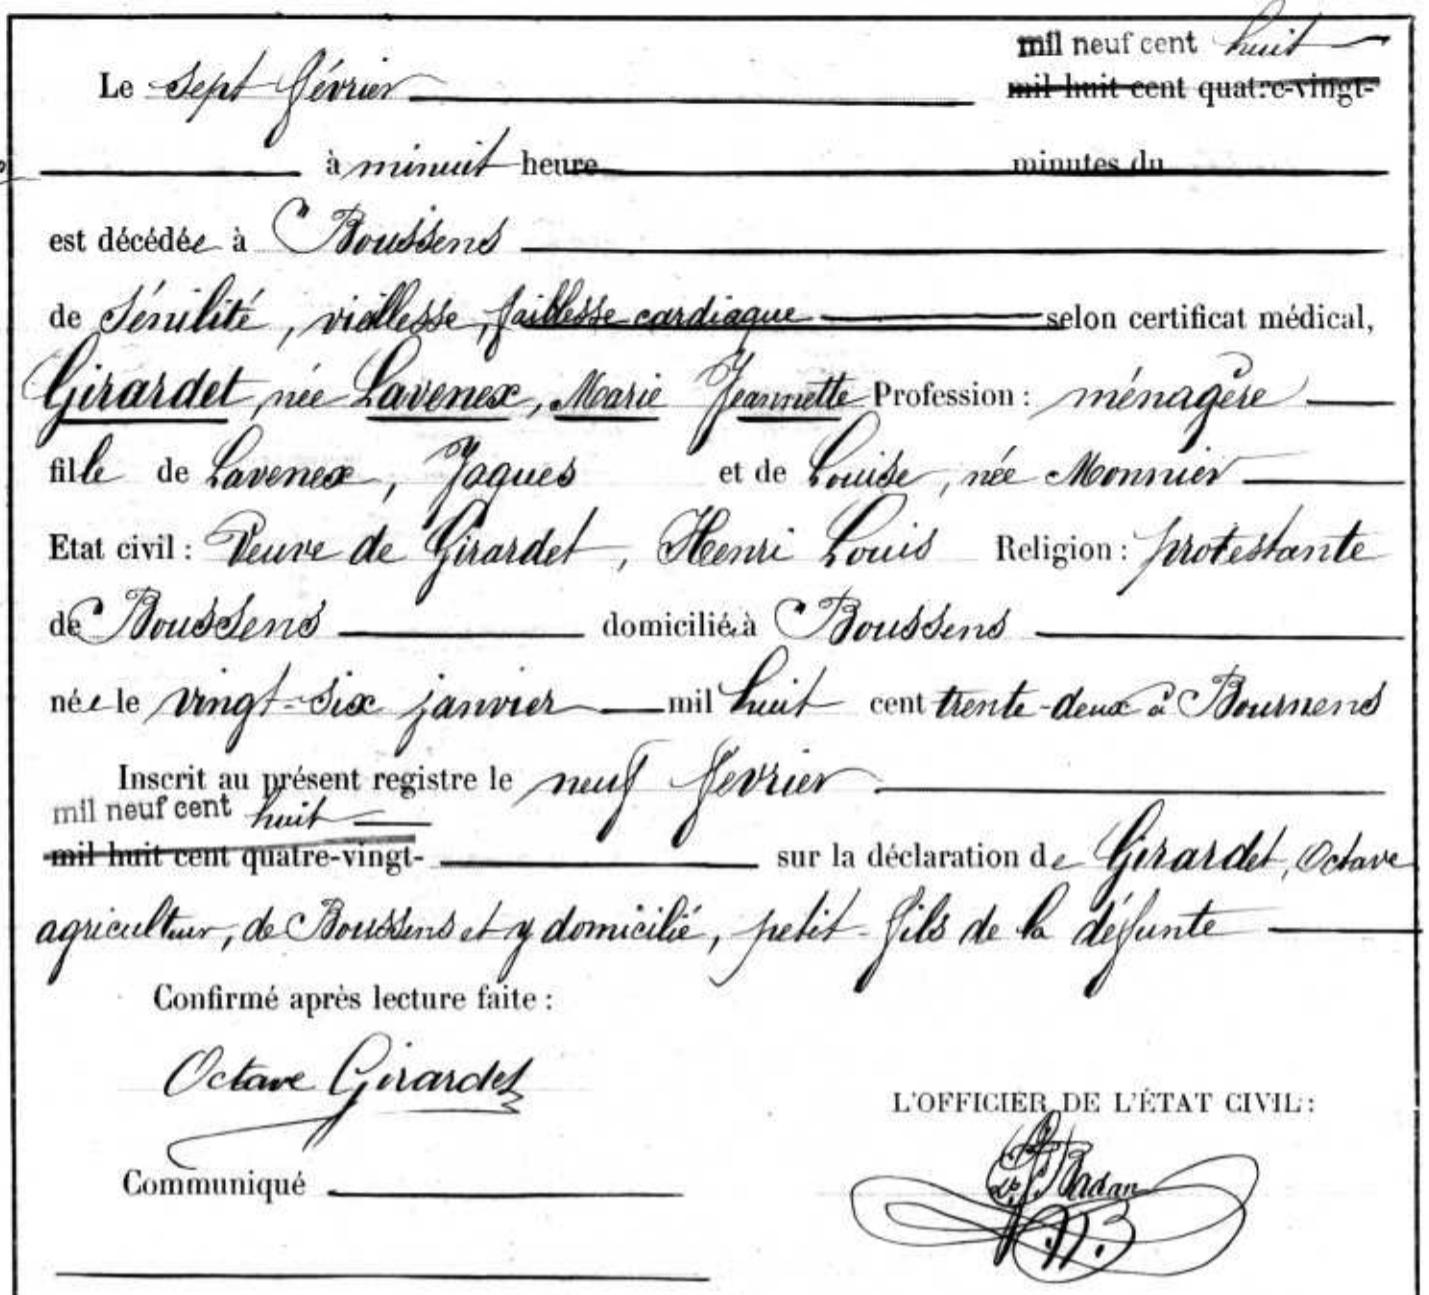 mil neuf cent huit
Le sept février mil huit cent quatre-vingt-
à minuit heure minutes du
est décédée à Boussens
de sénilité, vieillesse, faiblesse cardiaque selon certificat médical,
Girardet, née Lavenex, Marie Jeannette Profession : ménagère
fille de Lavenex, Jaques et de Louise, née Monnier
Etat civil : Veuve de Girardet, Henri Louis Religion : protestante
de Boussens domicilié à Boussens
née le vingt-six janvier mil huit cent trente-deux à Bournens
Inscrit au présent registre le neuf février
mil neuf cent huit
mil huit cent quatre-vingt- sur la déclaration de Girardet, Octave
agriculteur, de Boussens et y domicilié, petit-fils de la défunte
Confirmé après lecture faite :
Octave Girardet
L'OFFICIER DE L'ÉTAT CIVIL :
Badan
Communiqué